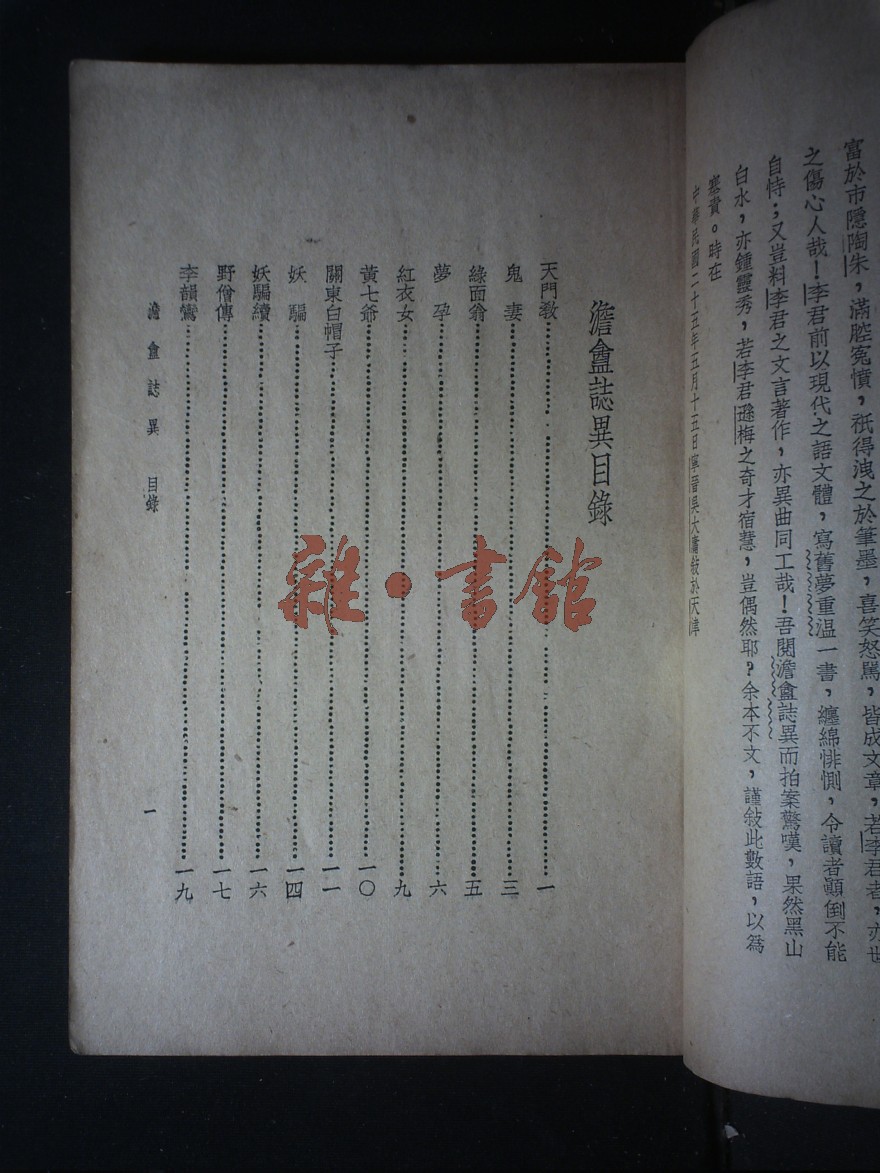 富於市隱陶朱，滿腔寃憤，祇得洩之於筆墨，喜笑怒駡，皆成文章，若李君者，亦世
之傷心人哉！李君前以現代之語文體，寫舊夢重温一書，纏綿悱惻，令讀者顚倒不能
自恃；又豈料李君之文言著作，亦異曲同工哉！吾閱澹盦誌異而拍案驚嘆，果然黑山
白水，亦鍾靈秀，若李君遜梅之奇才宿慧，豈偶然耶？余本不文，謹敍此數語，以爲
塞責。時在
中華民國二十五年五月十五日寧晉吳大庸敍於天津
澹盦誌異目錄
天門敎……一
鬼妻……三
綠面翁……五
夢孕……六
紅衣女……九
黃七爺……一〇
關東白帽子……一一
妖騙……一四
妖騙續……一六
野僧傳……一七
李韻鶯……一九
澹盦誌異 目錄
一
雜·書館